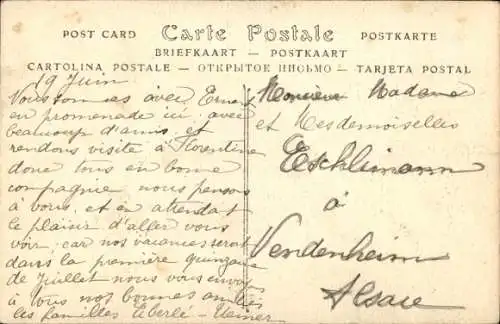 POST CARD Carte Postale POSTKARTE
BRIEFKAART — POSTKAART
CARTOLINA POSTALE — ОТКРЫТОЕ ПИСЬМО — TARJETA POSTAL
19 Juin
Nous sommes avec Ernest
en promenade ici avec
beaucoup d'amis et
rendons visite à Florentine
donc tous en bonne
compagnie nous pensons
à vous, et en attendant
le plaisir d'aller vous
voir, car nos vacances seront
dans la première quinzaine
de Juillet nous vous envoyons
à tous nos bonnes amitiés
les familles Eberlé -
Monsieur Madame
et Mesdemoiselles
Eschlimann
à
Vendenheim
Alsace